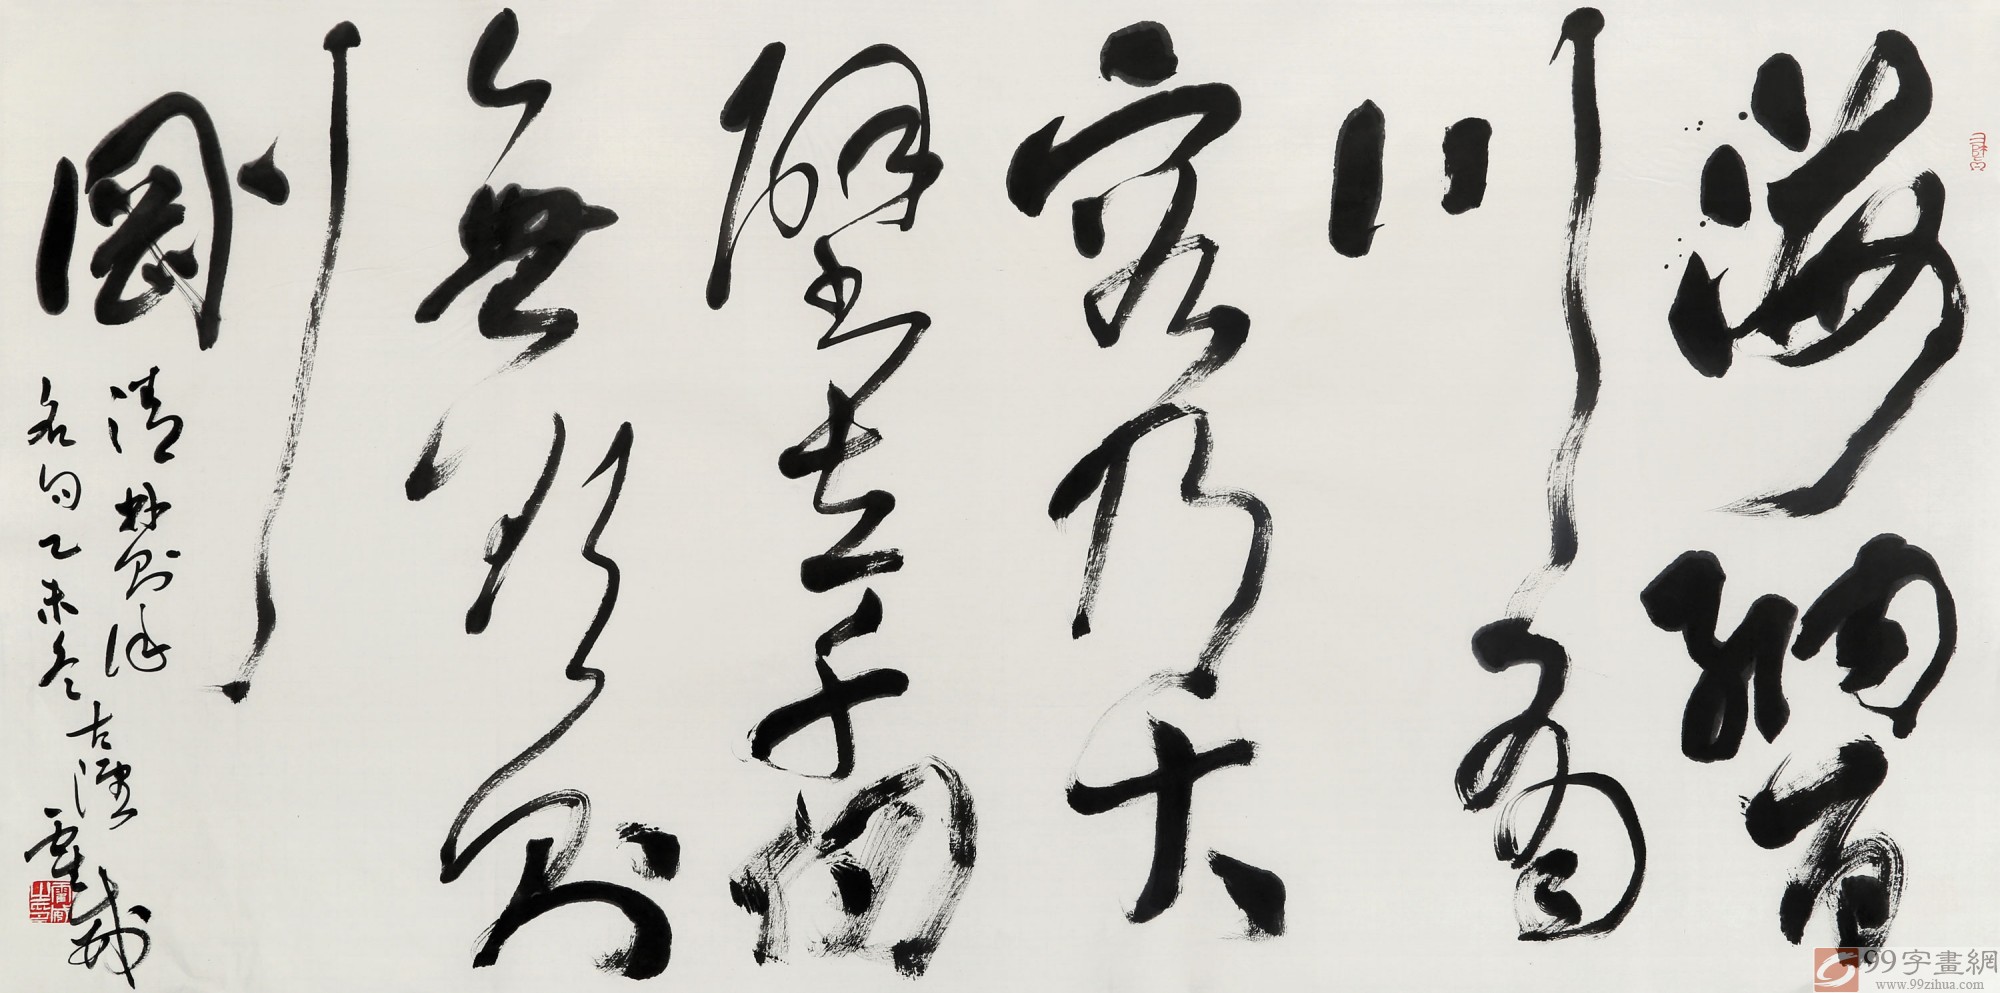 海納百
川有
容乃大
壁立千仞
無欲則
剛
清林則徐
名句乙未冬古漢
99字畫網
www.99zihua.com